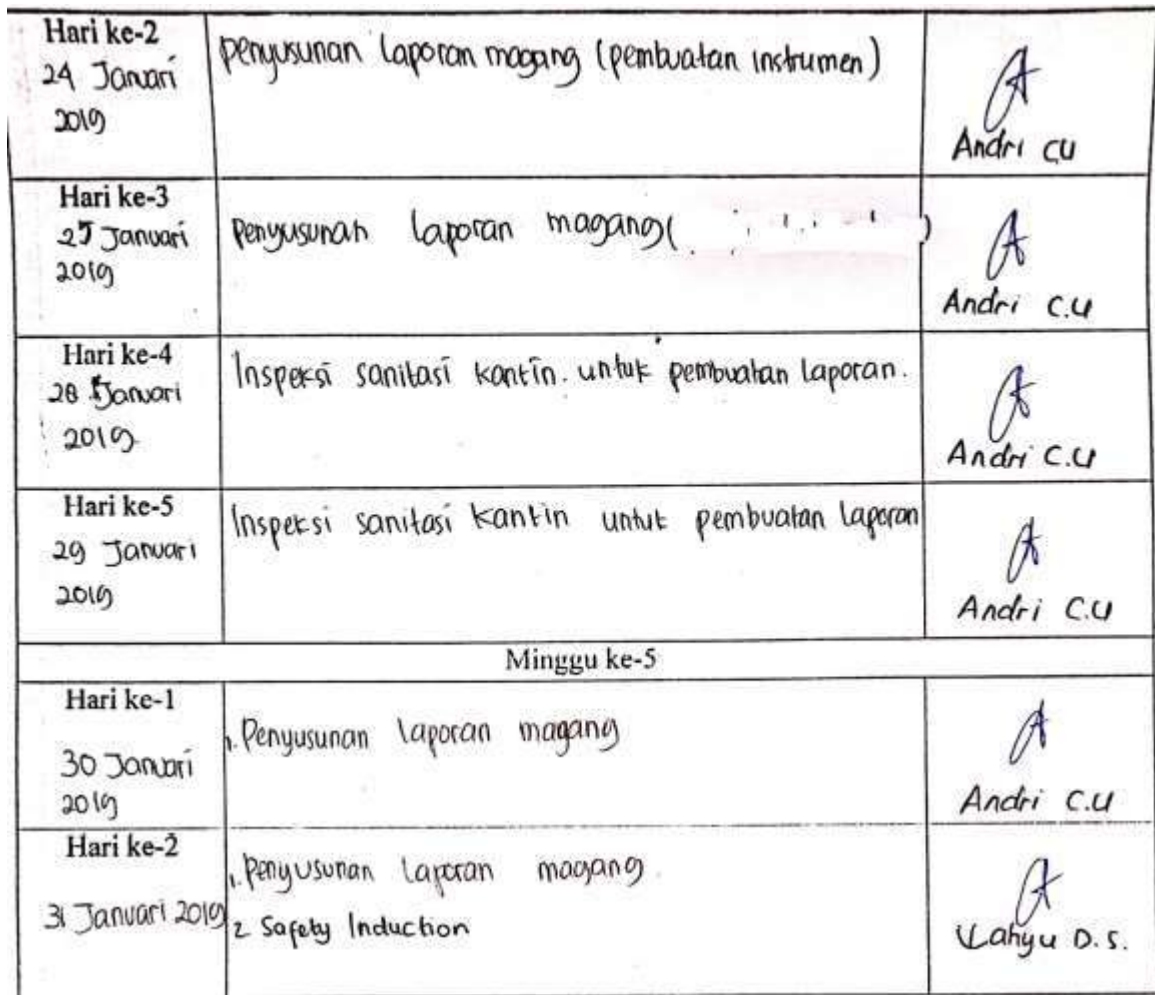 Hari ke-2
24 Januari
2019
penyusunan laporan magang (pembuatan instrumen)
Andri CU
Hari ke-3
25 Januari
2019
penyusunan laporan magang( )
Andri C.U
Hari ke-4
28 Januari
2019
Inspeksi sanitasi kantin. untuk pembuatan laporan.
Andri C.U
Hari ke-5
29 Januari
2019
Inspeksi sanitasi kantin untuk pembuatan laporan
Andri C.U
Minggu ke-5
Hari ke-1
30 Januari
2019
1. Penyusunan laporan magang
Andri C.U
Hari ke-2
31 Januari 2019
1. penyusunan laporan magang.
2 Safety Induction
Wahyu D.S.